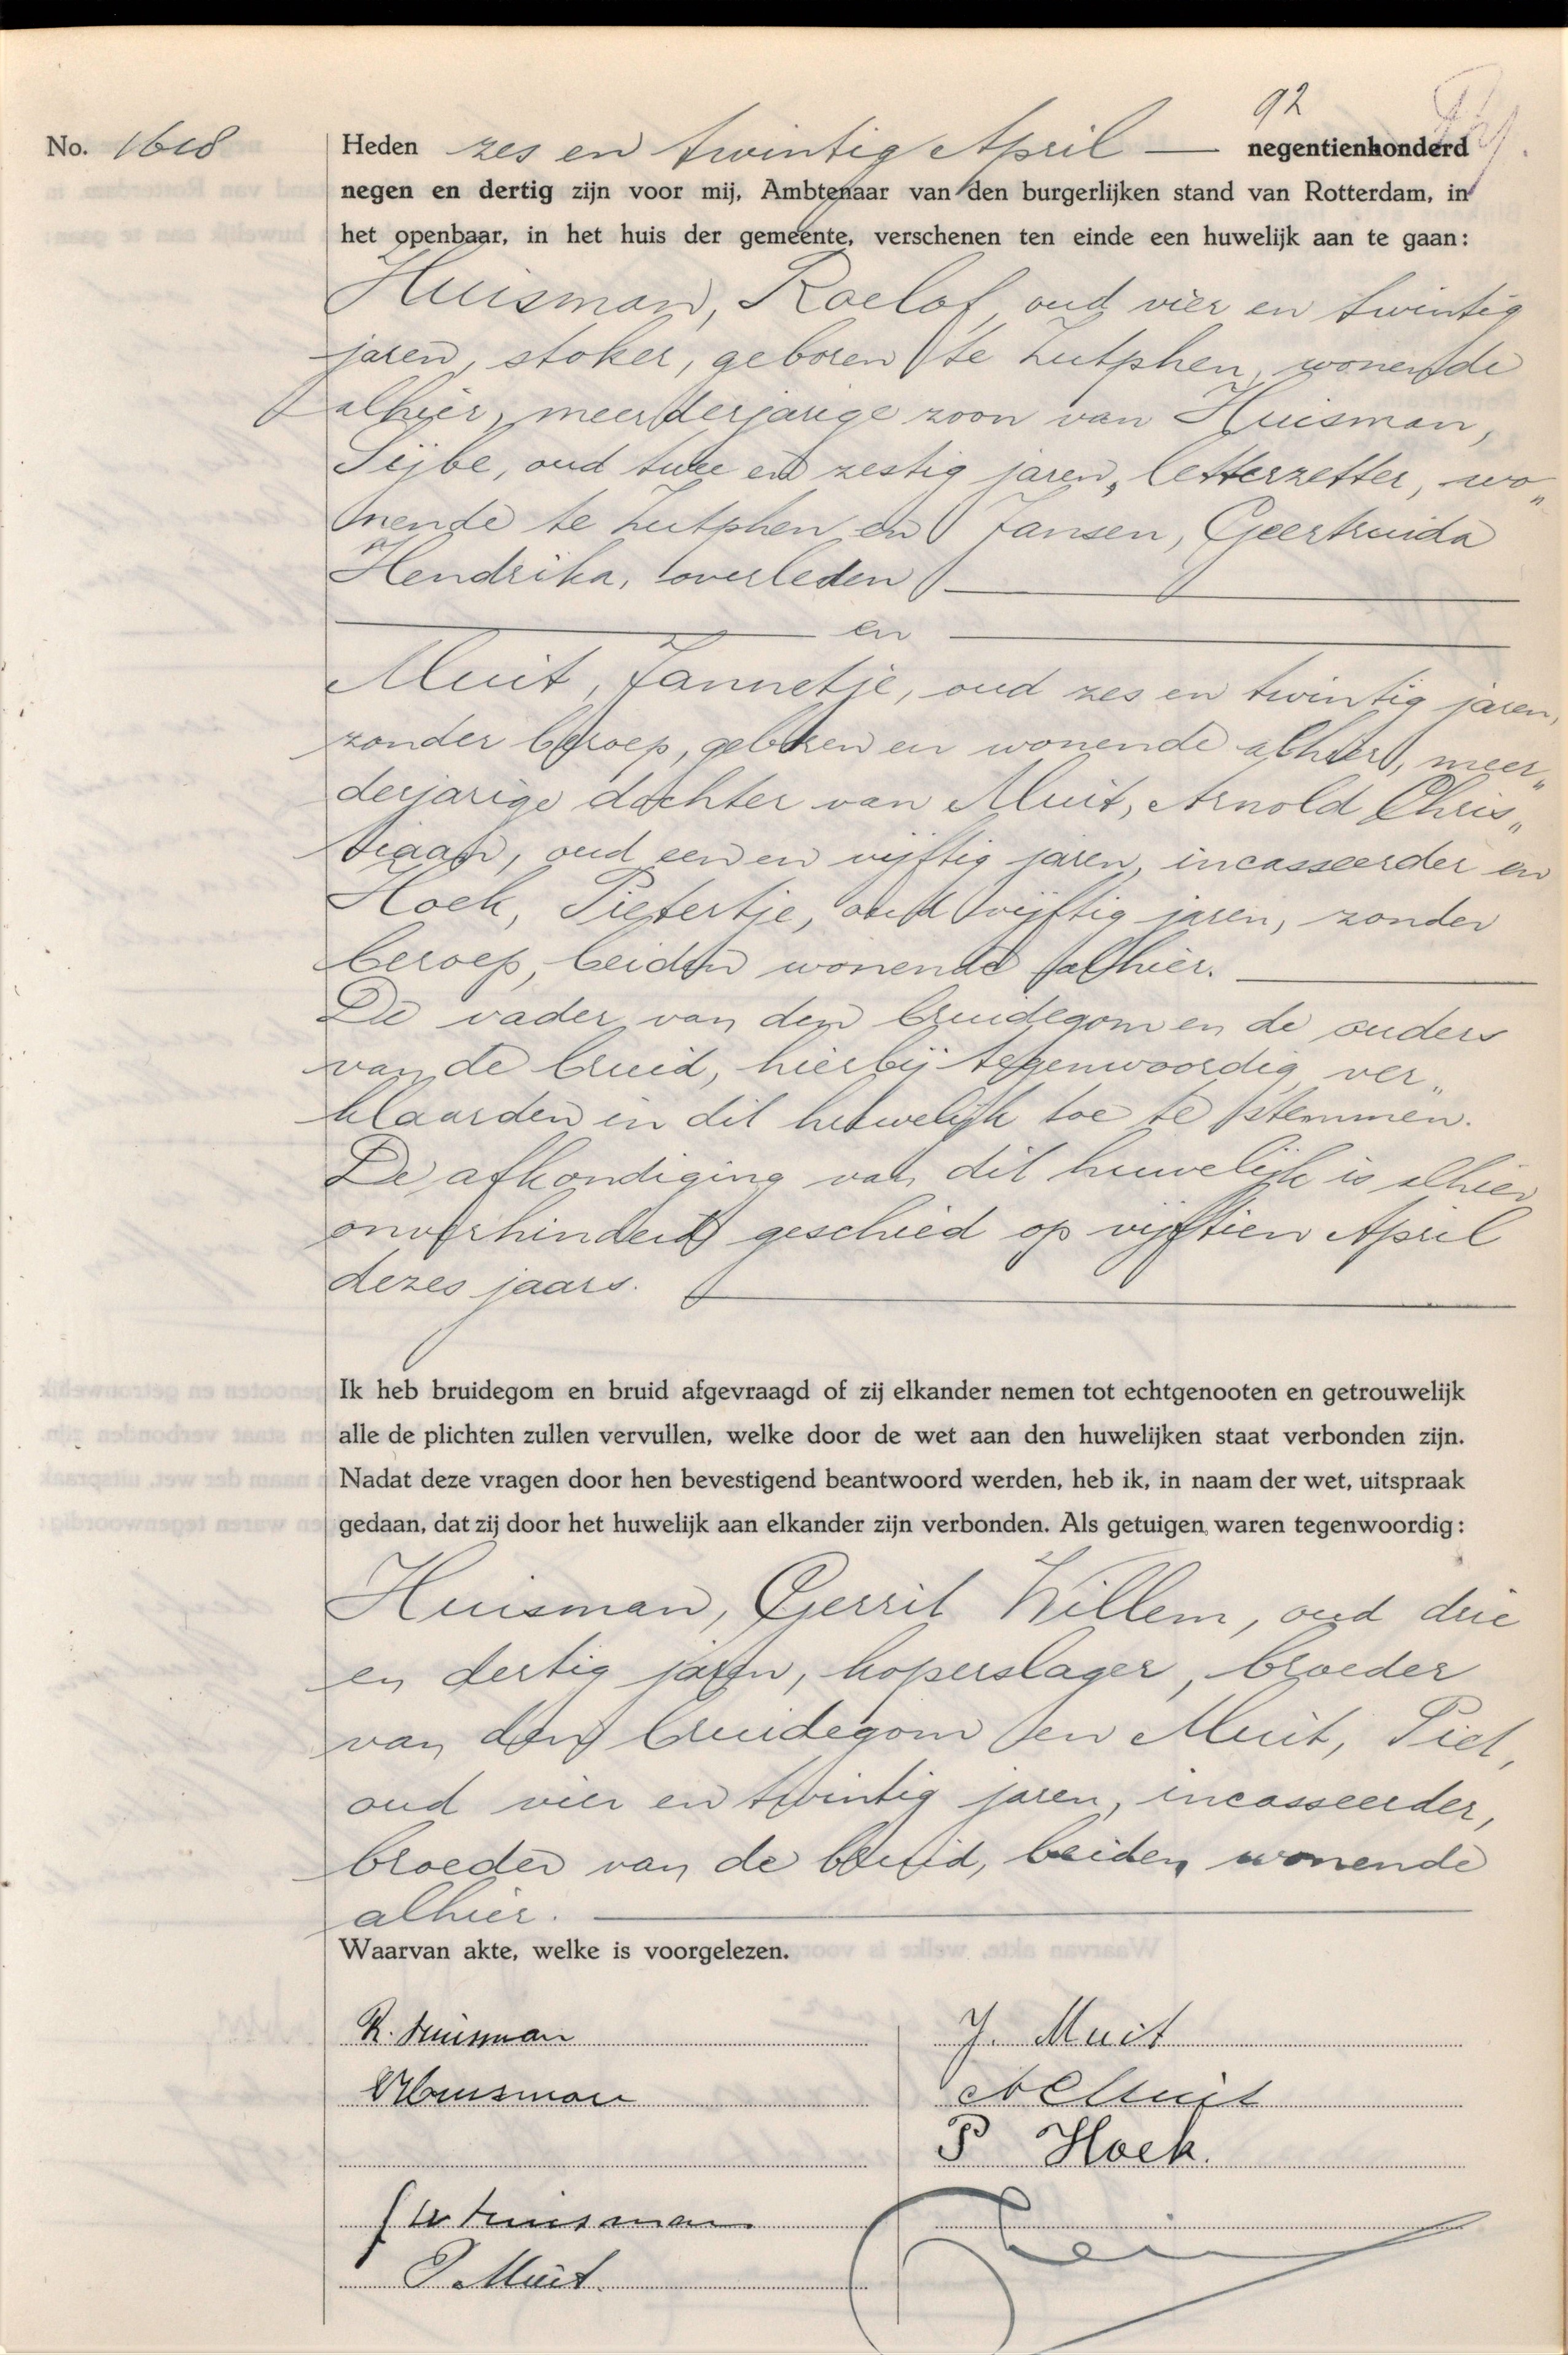 92
No. 1618
Heden zes en twintig April — negentienhonderd
negen en dertig zijn voor mij, Ambtenaar van den burgerlijken stand van Rotterdam, in
het openbaar, in het huis der gemeente, verschenen ten einde een huwelijk aan te gaan:
Huisman, Roelof, oud vier en twintig
jaren, stoker, geboren te Zutphen, wonende
alhier, meerderjarige zoon van Huisman,
Sijbe, oud twee en zestig jaren, letterzetter, wo„
nende te Zutphen en Jansen, Geertruida
Hendrika, overleden
en
Muit, Jannetje, oud zes en twintig jaren,
zonder beroep, geboren en wonende alhier, meer„
derjarige dochter van Muit, Arnold Chris„
tiaan, oud een en vijftig jaren, incasseerder en
Hoek, Pietertje, oud vijftig jaren, zonder
beroep, beiden wonende alhier.
De vader van den bruidegom en de ouders
van de bruid, hierbij tegenwoordig, ver„
klaarden in dit huwelijk toe te stemmen.
De afkondiging van dit huwelijk is alhier
onverhinderd geschied op vijftien April
dezes jaars.
Ik heb bruidegom en bruid afgevraagd of zij elkander nemen tot echtgenooten en getrouwelijk
alle de plichten zullen vervullen, welke door de wet aan den huwelijken staat verbonden zijn.
Nadat deze vragen door hen bevestigend beantwoord werden, heb ik, in naam der wet, uitspraak
gedaan, dat zij door het huwelijk aan elkander zijn verbonden. Als getuigen waren tegenwoordig:
Huisman, Gerrit Willem, oud drie
en dertig jaren, koperslager, broeder
van den bruidegom en Muit, Piet,
oud vier en twintig jaren, incasseerder,
broeder van de bruid, beiden wonende
alhier.
Waarvan akte, welke is voorgelezen.
R. Huisman
J. Muit
SHuisman
A C Muit
P Hoek.
G W Huisman
P. Muit.